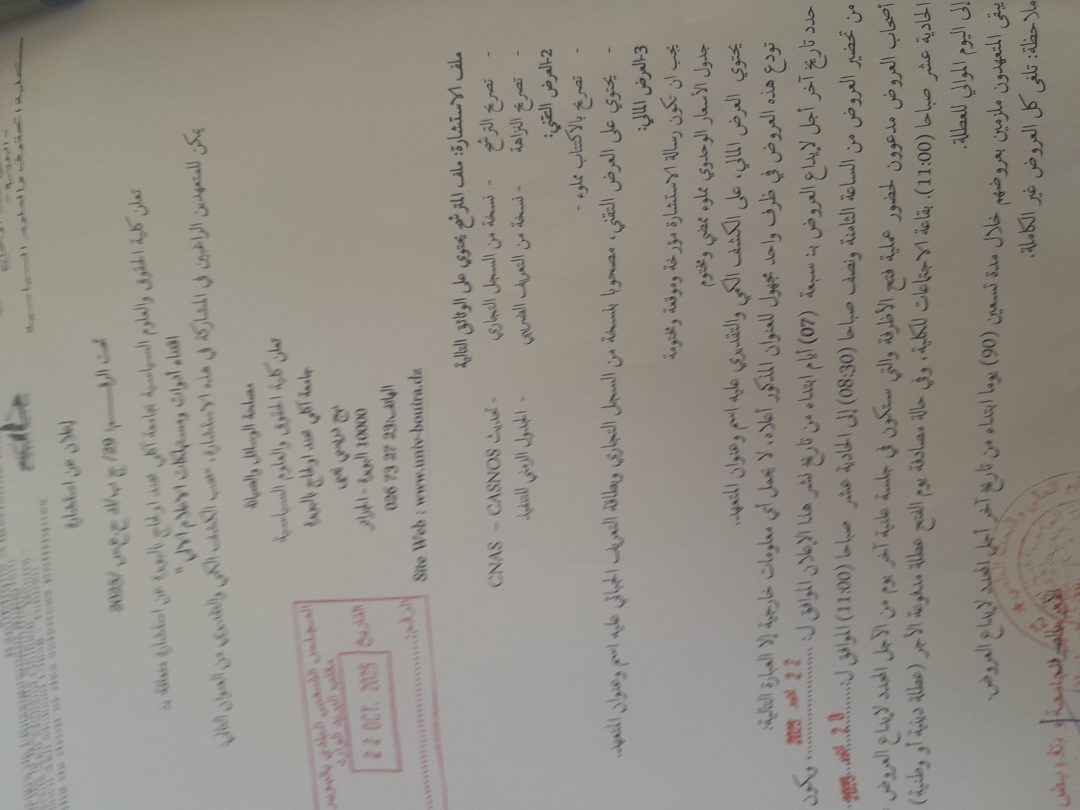 إعلان عن استشارة
تعلن كلية الحقوق والعلوم السياسية بجامعة آكلي محند اولحاج بالبويرة عن استشارة متعلقة بـ
اقتناء أدوات ومستهلكات الاعلام الآلي"
يمكن للمتعهدين الراغبين في المشاركة في هذه الاستشارة، سحب الكشف الكمي والتقديري من العنوان التالي
مصلحة الوسائل والصيانة
تعلن كلية الحقوق والعلوم السياسية
جامعة آكلي محند اولحاج بالبويرة
نهج دريسي يحيى
10000 البويرة - الجزائر
الهاتف: 026 73 27 23
Site Web : www.univ-bouira.dz
المجلس الشعبي البلدي
مكتب البريد الوارد
التاريخ
22 OCT. 2025
الرقم:
ملف الاستشارة: ملف الترشح يحتوي على الوثائق التالية
- تصريح الترشح - نسخة من السجل التجاري - تحديث CNAS – CASNOS
- تصريح النزاهة - نسخة من التعريف الضريبي - الجدول الزمني للتنفيذ
2-العرض التقني:
- تصريح بالاكتتاب مملوء -
- يحتوي على العرض التقني، مصحوبا بنسخة من السجل التجاري وبطاقة التعريف الجبائي عليه اسم وعنوان المتعهد.
3-العرض المالي:
يجب ان تكون رسالة الاستشارة مؤرخة وموقعة ومختومة
جدول الأسعار الوحدوي مملوء ممضي ومختوم
يحتوي العرض المالي، على الكشف الكمي والتقديري عليه اسم وعنوان المتعهد.
تودع هذه العروض في ظرف واحد مجهول للعنوان المذكور أعلاه، لا يحمل أي معلومات خارجية إلا العبارة التالية:
حدد تاريخ آخر أجل لإيداع العروض بـ سبعة (07) أيام ابتداء من تاريخ نشر هذا الإعلان الموافق لـ: 22 2025 ويكون
من تحضير العروض من الساعة الثامنة ونصف صباحا (08:30) إلى الحادية عشر صباحا (11:00) الموافق لـ: 28
أصحاب العروض مدعوون لحضور عملية فتح الأظرفة والتي ستكون في جلسة علنية آخر يوم من الأجل المحدد لإيداع العروض
الحادية عشر صباحا (11:00). بقاعة الاجتماعات للكلية، وفي حالة مصادفة يوم الفتح عطلة مدفوعة الأجر (عطلة دينية أو وطنية)
إلى اليوم الموالي للعطلة.
يبقى المتعهدون ملزمين بعروضهم خلال مدة تسعين (90) يوما ابتداء من تاريخ آخر أجل المحدد لإيداع العروض.
ملاحظة: تلغى كل العروض غير الكاملة.